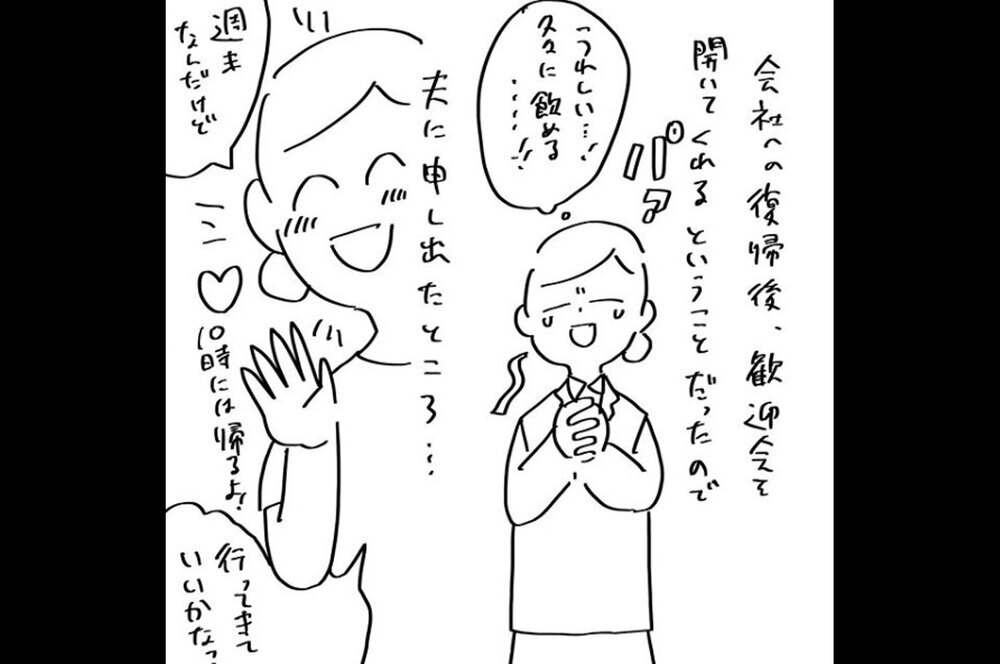 会社への復帰後、歓迎会を
開いてくれるということだったので
パァ
うれしい…!
久々に飲める
……!!
夫に申し出たところ…
週末
なんだけど
10時には帰るよ!
行ってきて
いいかなっ